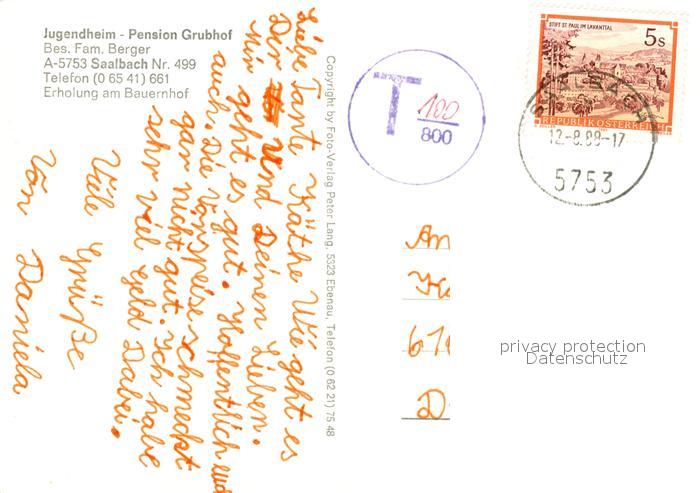 Jugendheim - Pension Grubhof
Bes. Fam. Berger
A-5753 Saalbach Nr. 499
Telefon (0 65 41) 661
Erholung am Bauernhof
Liebe Tante Käthe Wie geht es
Dir und Deinen Lieben.
Mir geht es gut. Hoffentlich und
auch. Die Vorspeise schmeckt
gar nicht gut. Ich habe
sehr viel Geld Dabei.
Viele Grüße
Von Daniela
Copyright by Foto-Verlag Peter Lang, 5323 Ebenau, Telefon (0 62 21) 75 48
T 180
800
STIFT ST. PAUL IM LAVANTTAL
5 S
REPUBLIK ÖSTERREICH
SAALBACH
12.-8.88-17
5753
An
D
privacy protection
Datenschutz